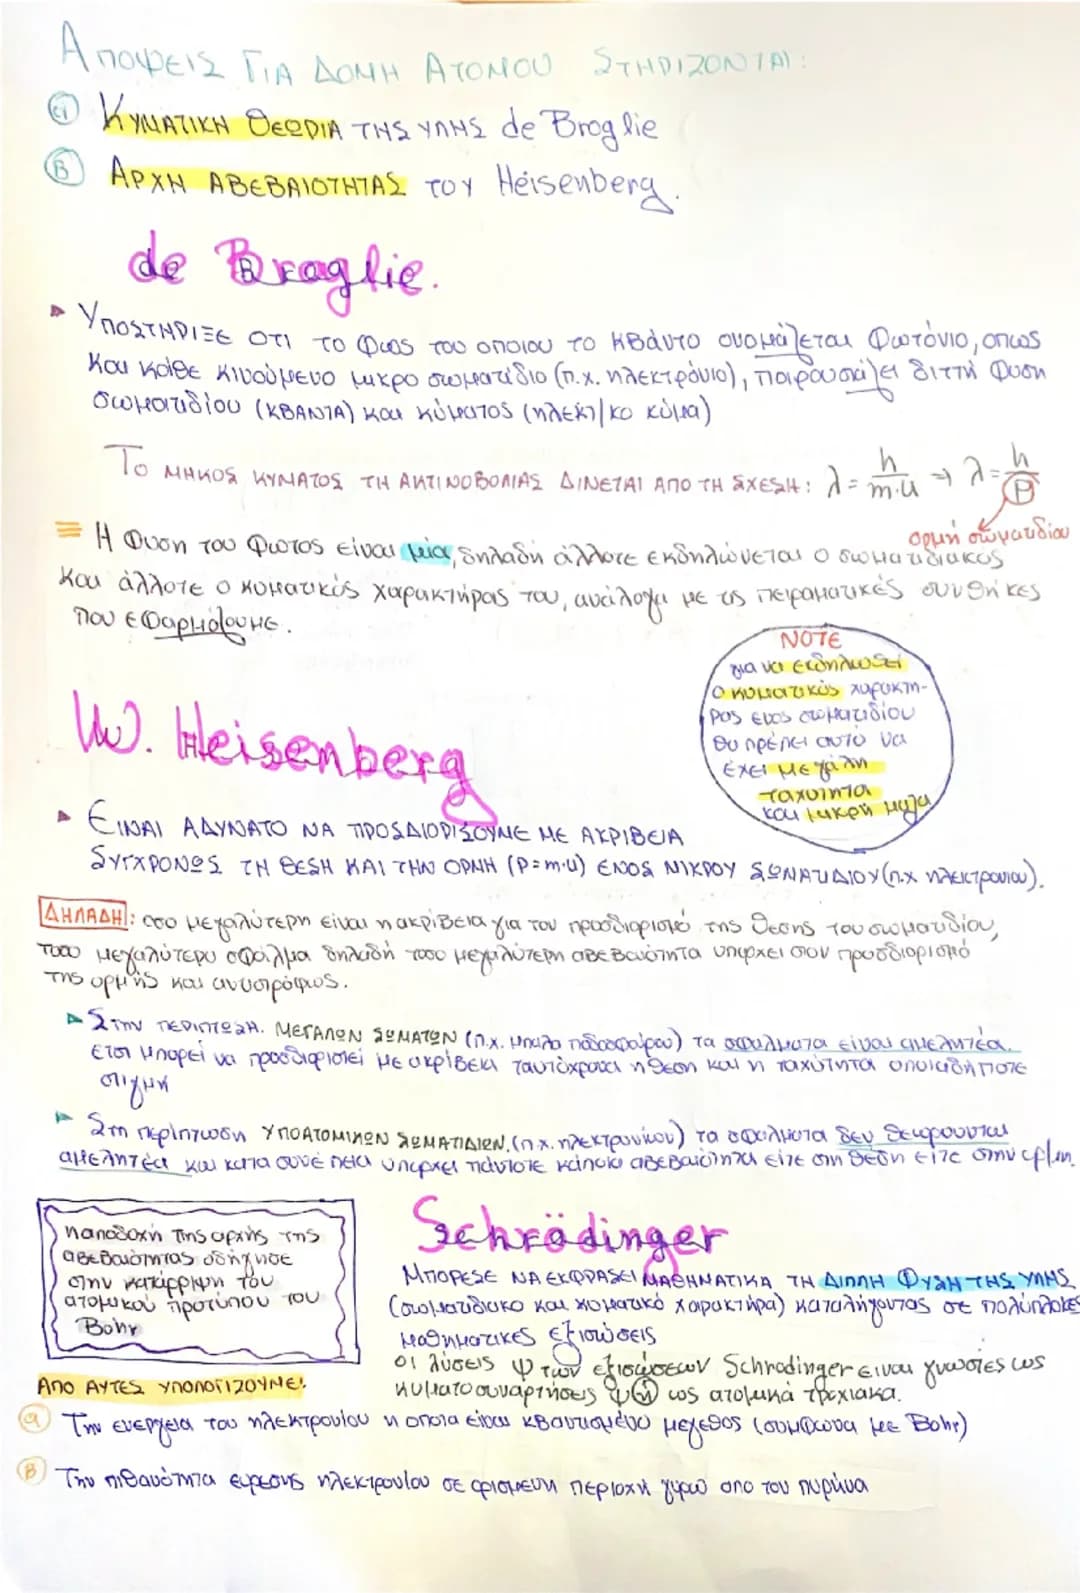 ΑΠΟΨΕΙΣ ΓΙΑ ΔΟΜΗ ΑΤΟΜΟΥ ΣΤΗΡΙΖΟΝΤΑΙ:
α ΚΥΜΑΤΙΚΗ ΘΕΩΡΙΑ ΤΗΣ ΥΛΗΣ de Broglie
Β ΑΡΧΗ ΑΒΕΒΑΙΟΤΗΤΑΣ ΤΟΥ Heisenberg.
de Broglie.
ΥΠΟΣΤΗΡΙΞΕ ΟΤΙ ΤΟ Φως του οποιου το κβάντο ονομάζεται Φωτόνιο, οπως
και κάθε κινούμενο μικρο σωματίδιο (π.χ. ηλεκτρόνιο), παρουσιάζει διττή Φυση
σωματιδίου (ΚΒΑΝΤΑ) και κύματος (ηλεκ/κο κύμα)
ΤΟ ΜΗΚΟΣ ΚΥΜΑΤΟΣ ΤΗ ΑΚΤΙΝΟΒΟΛΙΑΣ ΔΙΝΕΤΑΙ ΑΠΟ ΤΗ ΣΧΕΣΗ: λ = h/m·u ⇒ λ = h/P
ορμή σωματιδίου
Η Φυση του Φωτος είναι μία, δηλαδή άλλοτε εκδηλώνεται ο σωματιδιακός
και άλλοτε ο κυματικός χαρακτήρας του, ανάλογα με τις πειραματικές συνθήκες
που εφαρμόζουμε.
NOTE
για να εκδηλωθεί
ο κυματικός χαρακτή-
ρας ενος σωματιδίου
θα πρέπει αυτό να
έχει μεγάλη
ταχύτητα
και μικρή μάζα
W. Heisenberg
ΕΙΝΑΙ ΑΔΥΝΑΤΟ ΝΑ ΠΡΟΣΔΙΟΡΙΣΟΥΜΕ ΜΕ ΑΚΡΙΒΕΙΑ
ΣΥΓΧΡΟΝΩΣ ΤΗ ΘΕΣΗ ΚΑΙ ΤΗΝ ΟΡΜΗ (P=m·u) ΕΝΟΣ ΜΙΚΡΟΥ ΣΩΜΑΤΙΔΙΟΥ (π.χ ηλεκτρονιου).
ΔΗΛΑΔΗ: οσο μεγαλύτερη είναι η ακρίβεια για τον προσδιορισμό της θεσης του σωματιδίου,
τοσο μεγαλύτερο σφάλμα δηλαδή τοσο μεγαλύτερη αβεβαιότητα υπαρχει στον προσδιορισμό
της ορμής και αντιστρόφως.
Στην ΠΕΡΙΠΤΩΣΗ. ΜΕΓΑΛΩΝ ΣΩΜΑΤΩΝ (π.χ. μπαλα ποδοσφαίρου) τα σφαλματα είναι αμελητέα.
Ετσι μπορεί να προσδιοριστεί με ακρίβεια ταυτόχρονα η θεση και η ταχύτητα οποιαδήποτε
στιγμή
Στη περίπτωση ΥΠΟΑΤΟΜΙΚΩΝ ΣΩΜΑΤΙΔΙΩΝ, (π.χ. ηλεκτρονίου) τα σφάλματα δεν θεωρουνται
αμελητέα και κατα συνέπεια υπαρχει πάντοτε κάποια αβεβαιότητα είτε στη θεση είτε στην ορμη.
Η αποδοχή της αρχής της
αβεβαιότητας οδήγησε
στην κατάρριψη του
ατομικού προτύπου του
Bohr
Schrödinger
ΜΠΟΡΕΣΕ ΝΑ ΕΚΦΡΑΣΕΙ ΜΑΘΗΜΑΤΙΚΑ ΤΗ ΔΙΠΛΗ ΦΥΣΗ ΤΗΣ ΥΛΗΣ
(σωματιδιακο και κυματικό χαρακτήρα) καταλήγοντας σε πολύπλοκες
μαθηματικες εξισώσεις
οι λύσεις ψ των εξισώσεων Schrodinger ειναι γνωστες ως
κυματοσυναρτήσεις ψ ή ως ατομικά τροχιακα.
ΑΠΟ ΑΥΤΕΣ ΥΠΟΛΟΓΙΖΟΥΜΕ:
α Την ενεργεια του ηλεκτρονίου η οποια είναι κβαντισμένο μεγεθος (συμφωνα με Bohr)
Β Την πιθανότητα ευρεσης ηλεκτρονίου σε ορισμενη περιοχή γύρω απο τον πυρήνα